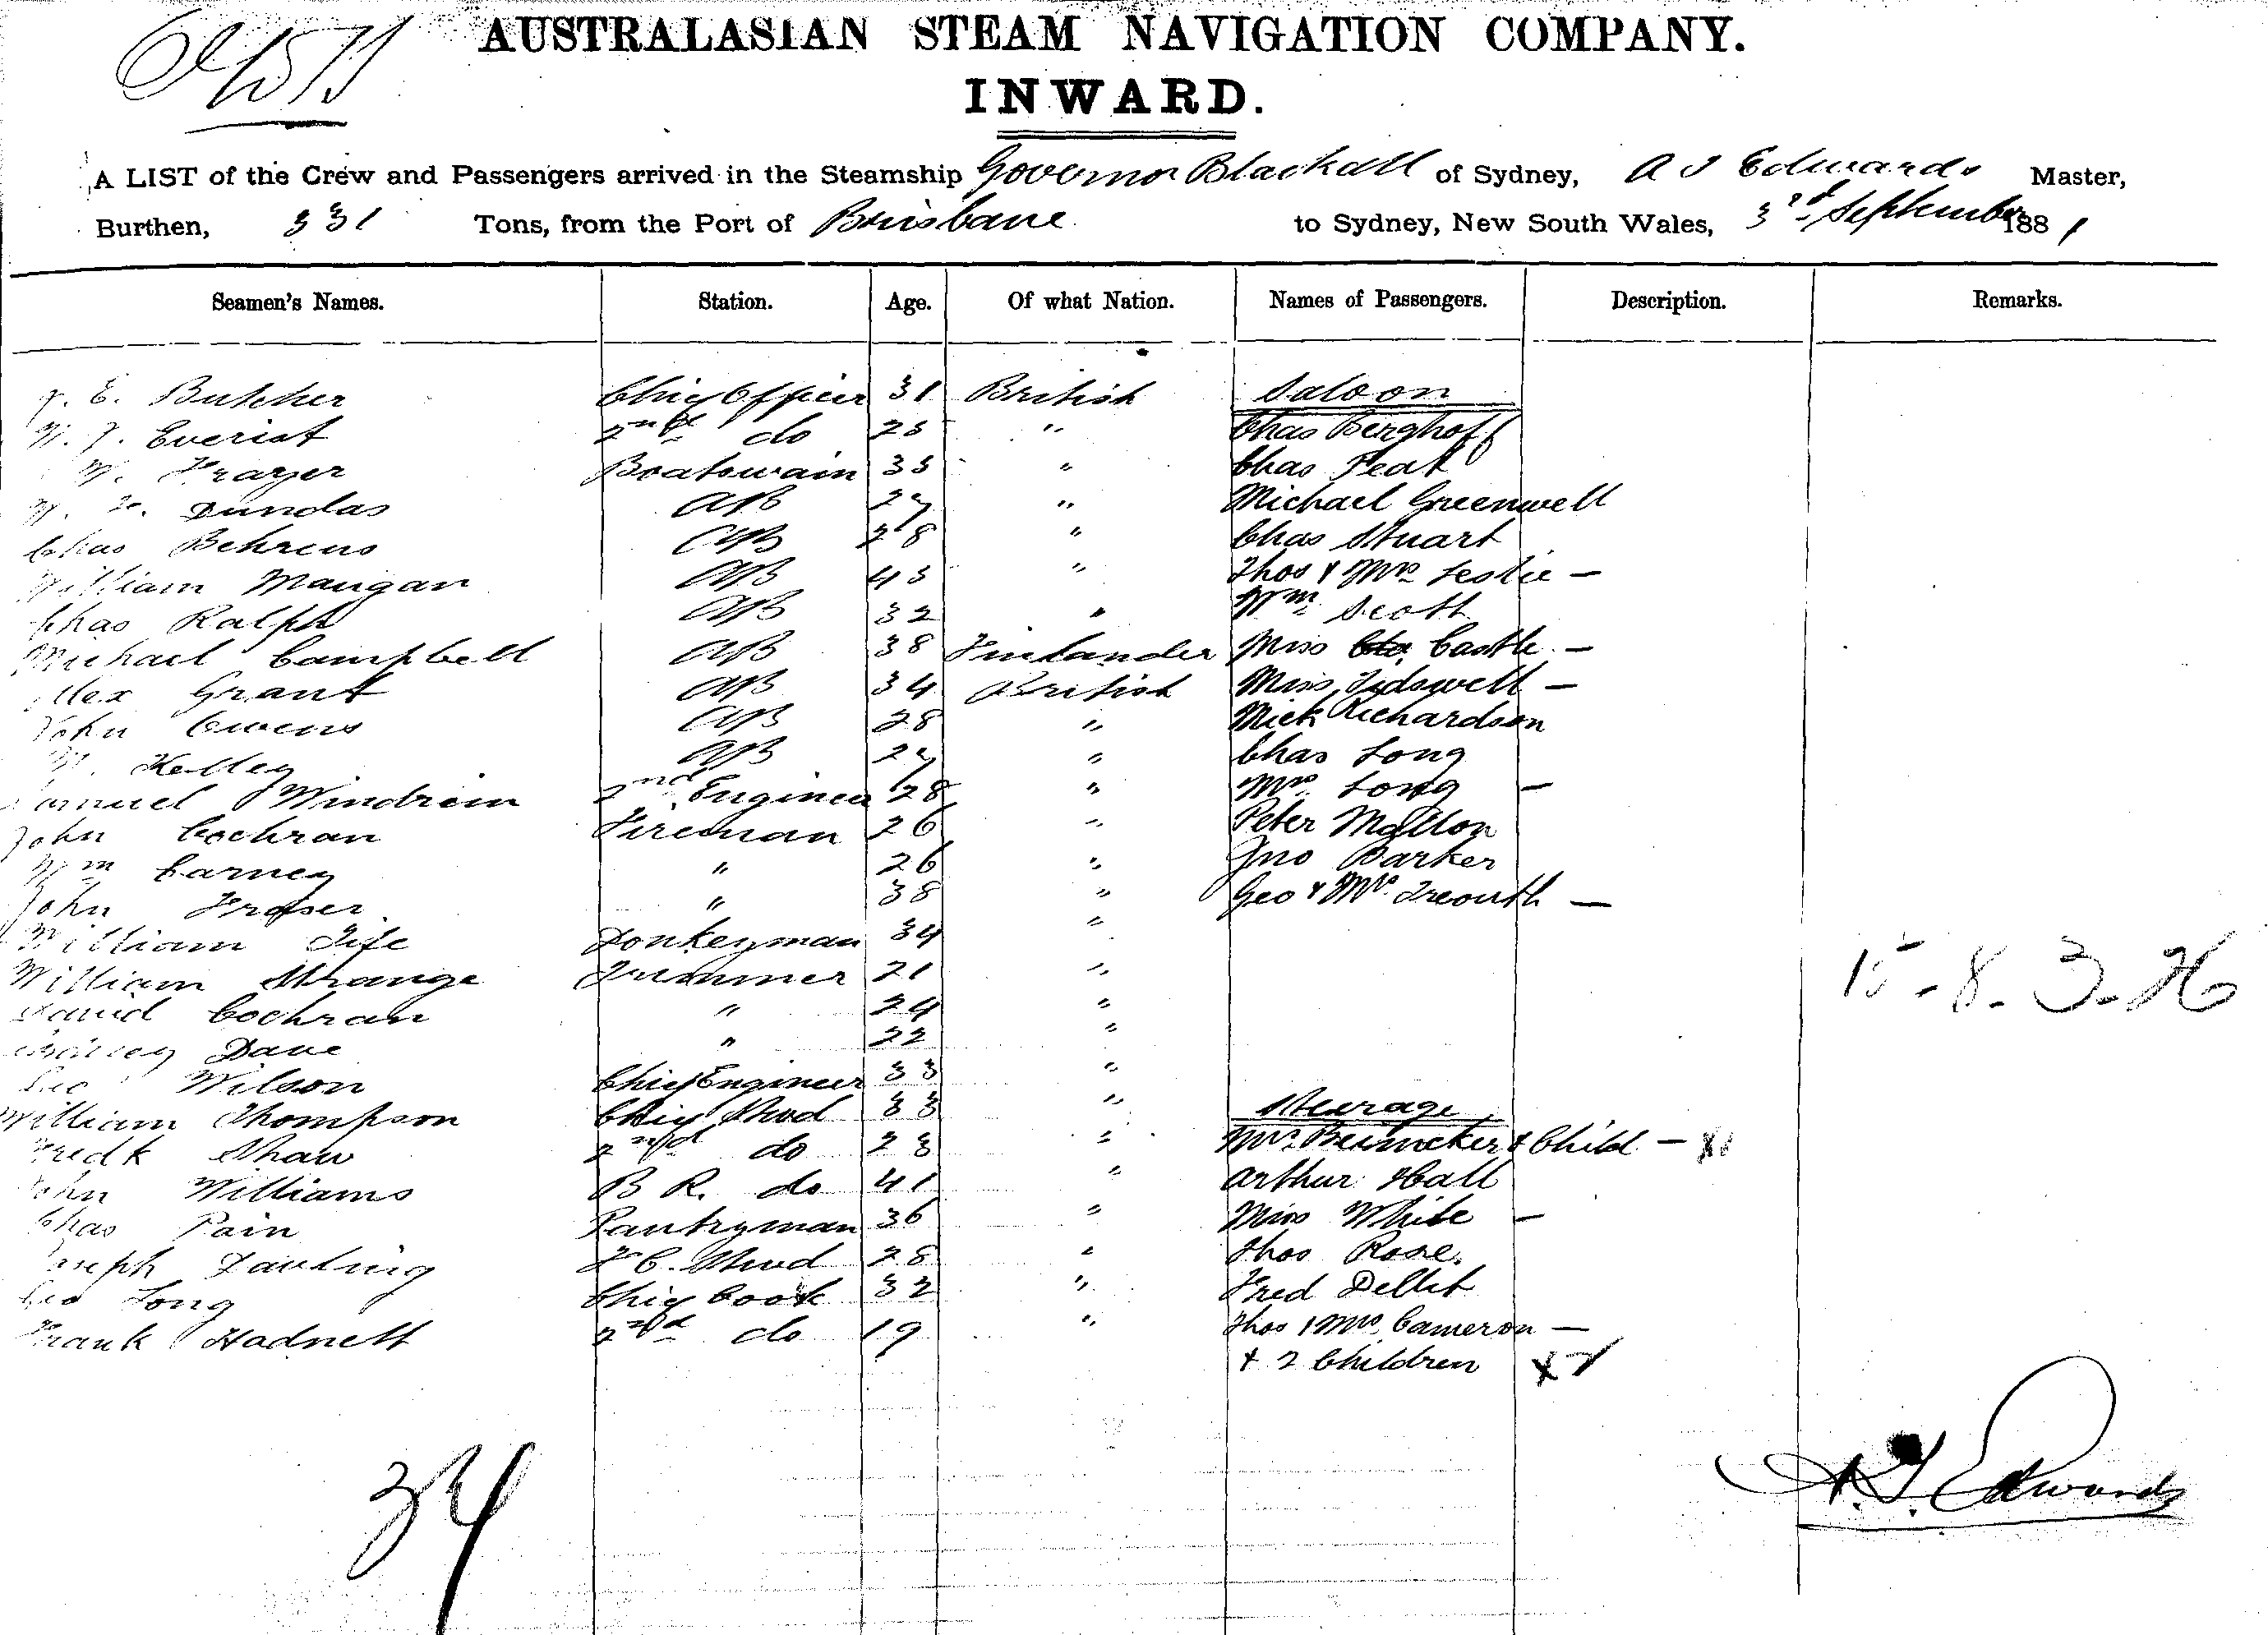 AUSTRALASIAN STEAM NAVIGATION COMPANY.
INWARD.
A LIST of the Crew and Passengers arrived in the Steamship Governor Blackall of Sydney, A J Edwards Master,
Burthen, 331 Tons, from the Port of Brisbane to Sydney, New South Wales, 3rd September 1881
Seamen's Names. Station. Age. Of what Nation. Names of Passengers. Description. Remarks.
E. Butcher Chief Officer 31 British Saloon
W. J. Everist 2nd do 25 " Chas Berghoff
W. Frazer Boatswain 35 " Chas Peat
Dundas AB 27 " Michael Greenwell
Chas Behrens AB 28 " Chas Stuart
William Mangan AB 45 " Thos & Mrs Leslie —
Chas Ralph AB 32 " Wm Scott
Michael Campbell AB 38 Finlander Miss Castle —
Alex Grant AB 34 British Miss Tidswell —
John Owens AB 28 " Mick Richardson
Kelley AB 27 " Chas Long
Samuel Windrim 2nd Engineer 28 " Mrs Long —
John Cochran Fireman 26 " Peter Mallon
Wm Carney " 26 " Jno Barker
John Fraser " 38 " Geo & Mrs Treouth —
William Fife Donkeyman 34 "
William Strange Trimmer 21 "
David Cochran " 24 " 15-8-3-26
Dave " 22 "
Geo Wilson Chief Engineer 33 "
William Thompson Chief Stwd 33 " Steerage
Fredk Shaw 2nd do 23 " Mrs & Child —
John Williams B R. do 41 " Arthur Hall
Chas Pain Pantryman 36 " Miss White —
Joseph Dauling F C. Stwd 28 " Thos Rose
Geo Long Chief Cook 32 " Fred Dellit
Frank Hadnett 2nd do 19 " Thos & Mrs Cameron —
+ 2 Children
34
A. J. Edwards